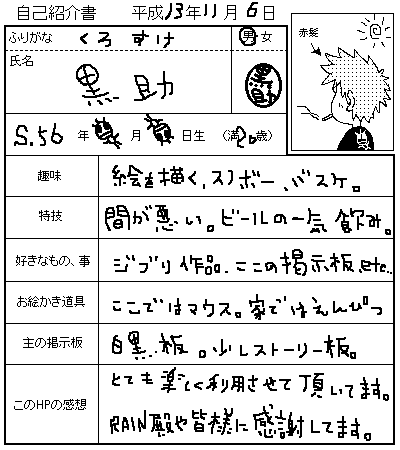 自己紹介書 平成13年11月6日
ふりがな くろすけ 男女
氏名 黒助 黒助
赤髪
S.56年 月 日生 (満20歳)
趣味 絵を描く、スノボー、バスケ。
特技 間が悪い。ビールの一気飲み。
好きなもの、事 ジブリ作品、ここの掲示板、etc..
お絵かき道具 ここではマウス。家ではえんぴつ
主の掲示板 白黒板。少しストーリー板。
このHPの感想 とても楽しく利用させて頂いてます。
RAIN殿や皆様に感謝してます。